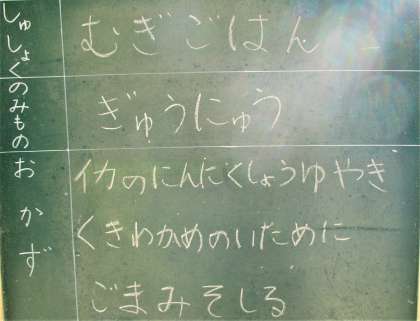 しゅしょく むぎごはん
のみもの ぎゅうにゅう
おかず イカのにんにくしょうゆやき
くきわかめのいために
ごまみそしる